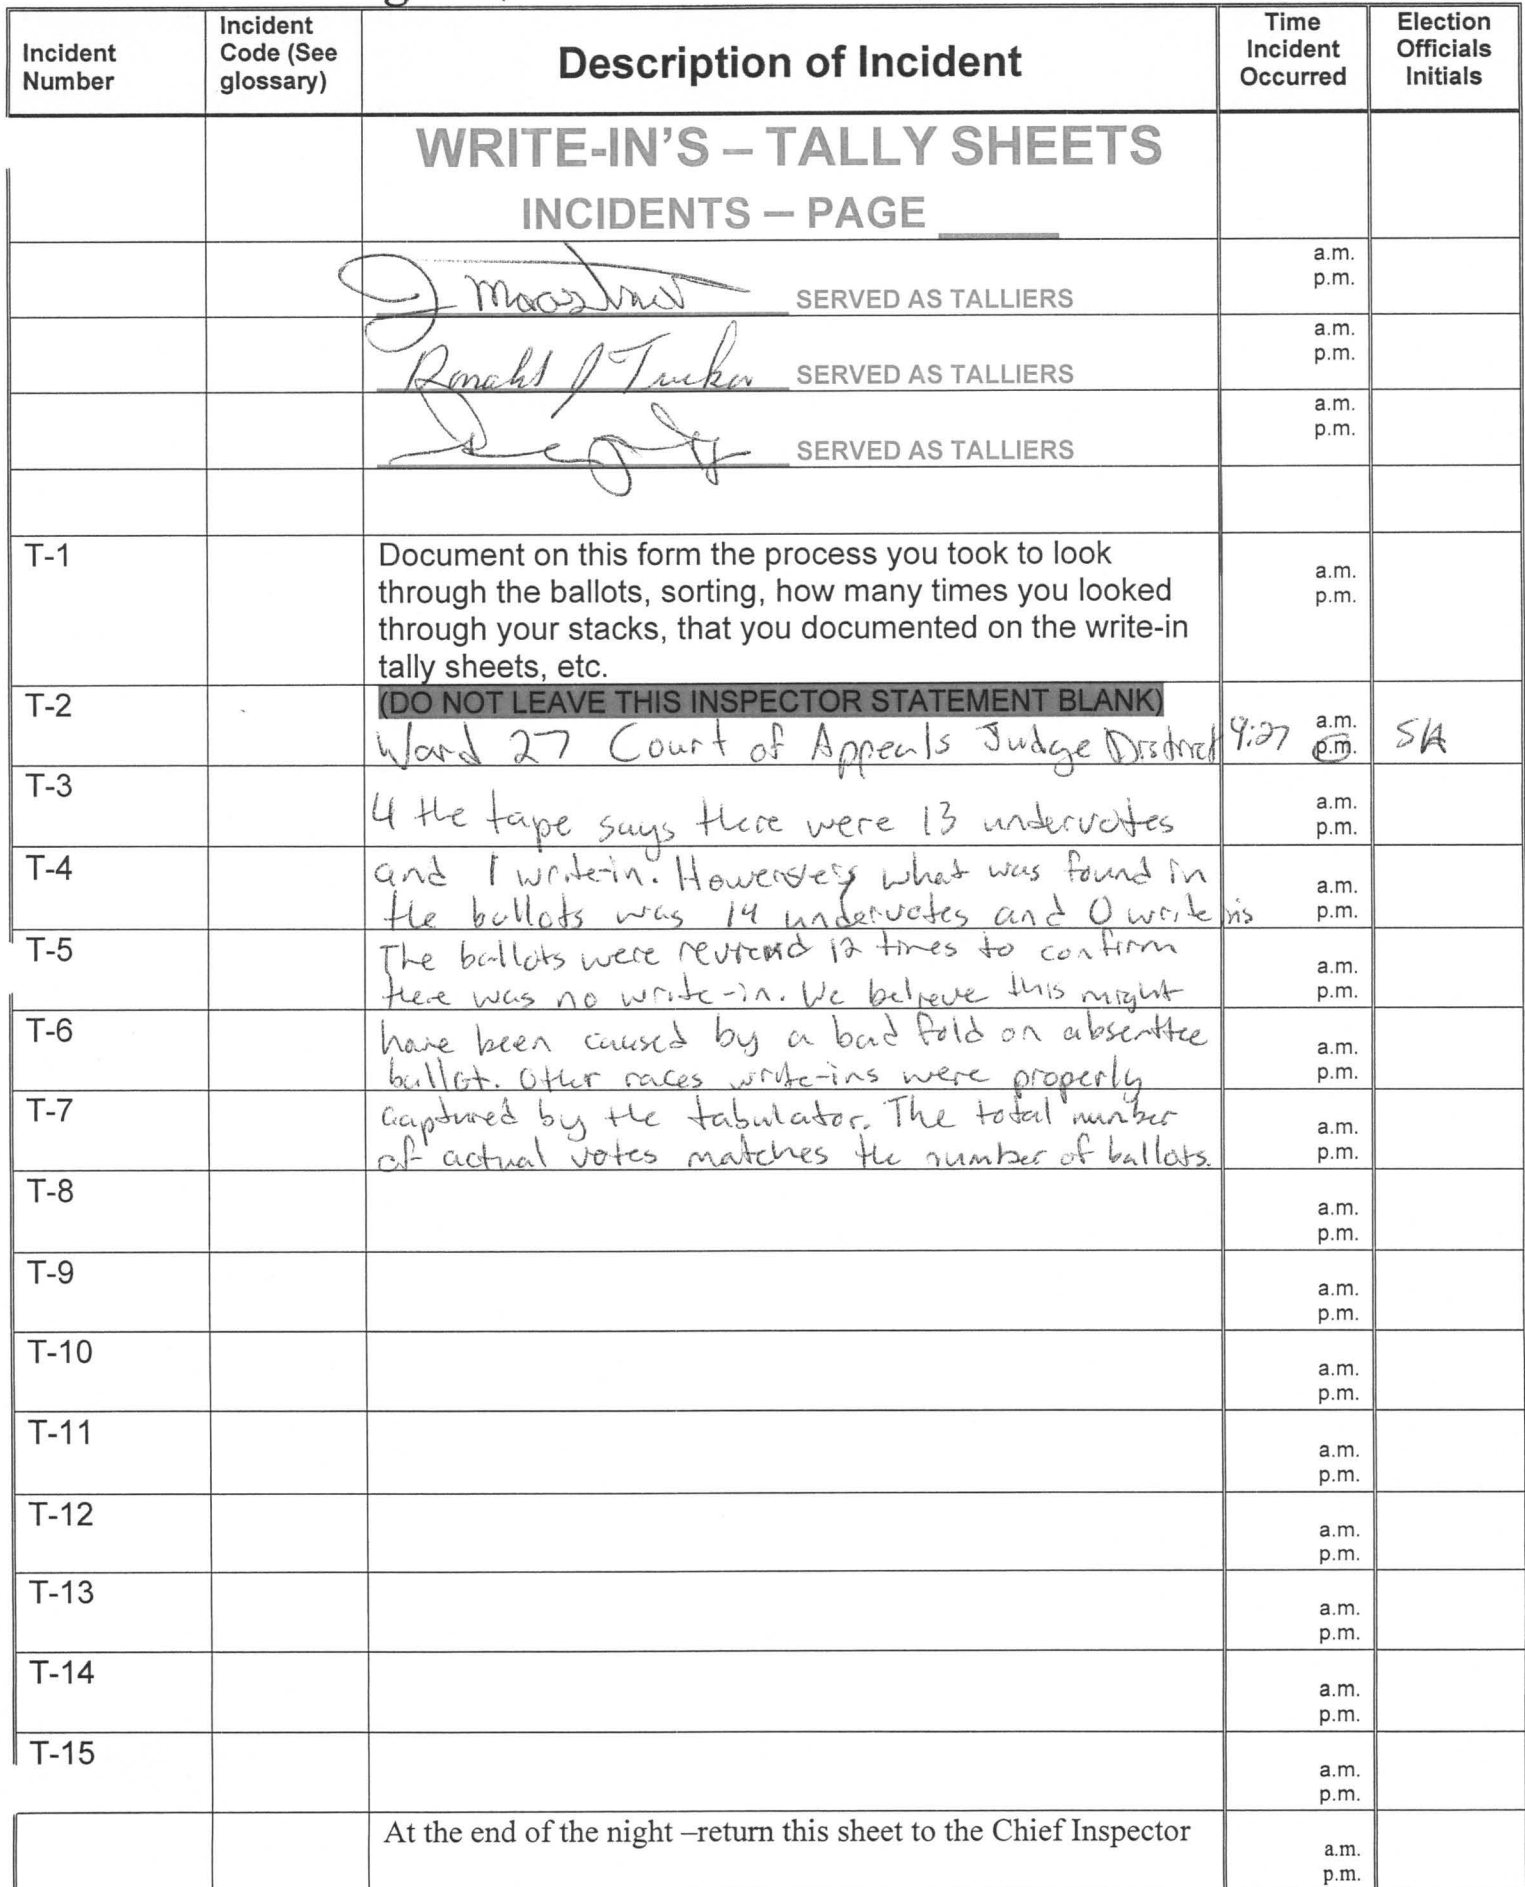 Incident Number
Incident Code (See glossary)
Description of Incident
Time Incident Occurred
Election Officials Initials
WRITE-IN'S – TALLY SHEETS
INCIDENTS – PAGE
a.m.
p.m.
SERVED AS TALLIERS
a.m.
p.m.
Ronald J Tucker SERVED AS TALLIERS
a.m.
p.m.
SERVED AS TALLIERS
T-1
Document on this form the process you took to look
through the ballots, sorting, how many times you looked
through your stacks, that you documented on the write-in
tally sheets, etc.
a.m.
p.m.
T-2
(DO NOT LEAVE THIS INSPECTOR STATEMENT BLANK)
Ward 27 Court of Appeals Judge District
9:27 a.m.
p.m.
SH
T-3
4 the tape says there were 13 undervotes
a.m.
p.m.
T-4
and 1 write-in. However, what was found in
the ballots was 14 undervotes and 0 write ins
a.m.
p.m.
T-5
The ballots were reviewed 12 times to confirm
there was no write-in. We believe this might
a.m.
p.m.
T-6
have been caused by a bad fold on absenttee
ballot. Other races write-ins were properly
a.m.
p.m.
T-7
captured by the tabulator. The total number
of actual votes matches the number of ballots.
a.m.
p.m.
T-8
a.m.
p.m.
T-9
a.m.
p.m.
T-10
a.m.
p.m.
T-11
a.m.
p.m.
T-12
a.m.
p.m.
T-13
a.m.
p.m.
T-14
a.m.
p.m.
T-15
a.m.
p.m.
At the end of the night –return this sheet to the Chief Inspector
a.m.
p.m.